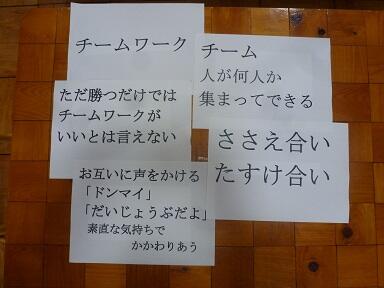 チームワーク
チーム
人が何人か
集まってできる
ただ勝つだけでは
チームワークが
いいとは言えない
ささえ合い
たすけ合い
お互いに声をかける
「ドンマイ」
「だいじょうぶだよ」
素直な気持ちで
かかわりあう